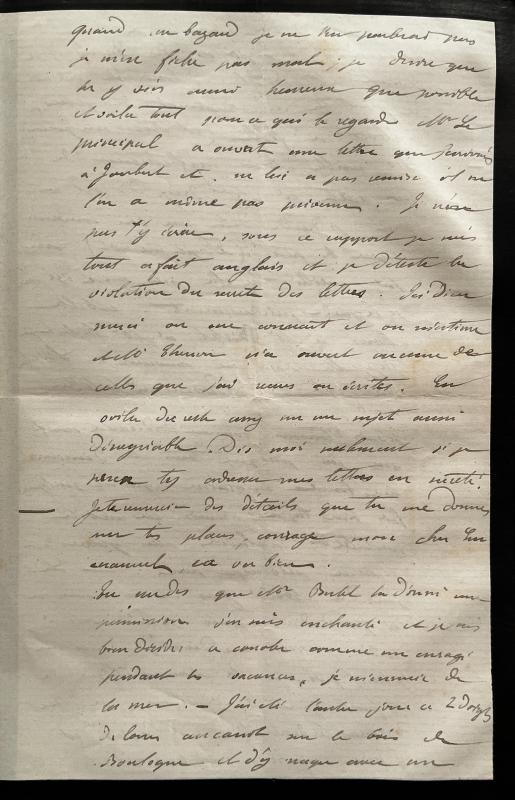 quand un bazard je ne t'en parlerai pas
je m'en fiche pas mal; je désire que
tu y sois aussi heureux que possible
et voilà tout pour ce qui le regarde Mr Le
principal a ouvert une lettre que j'envoyais
à Joubert et ne lui a pas remise et ne
l'en a même pas prévenu. Je n'ose
pas t'y écrire, sous ce rapport je suis
tout à fait anglais et je déteste la
violation du secret des lettres. Ici Dieu
merci on me connait et on m'estime
et Mr n'a ouvert aucune de
celles que j'ai reçues ou écrites. En
voilà du reste assez sur un sujet aussi
désagréable. Dis moi seulement si je
peux t'y adresser mes lettres en sûreté.
Je te remercie des détails que tu me donnes
sur tes places, courage mon cher Em
manuel, ça va bien.
Tu me dis que Mr t'a donné une
permission j'en suis enchanté et je suis
bien décidé à canoter comme un enragé
pendant les vacances, je m'ennuie de
la mer. — J'ai été l'autre jour ce
de louer un canot sur le bois de
Boulogne et d'y nager avec un